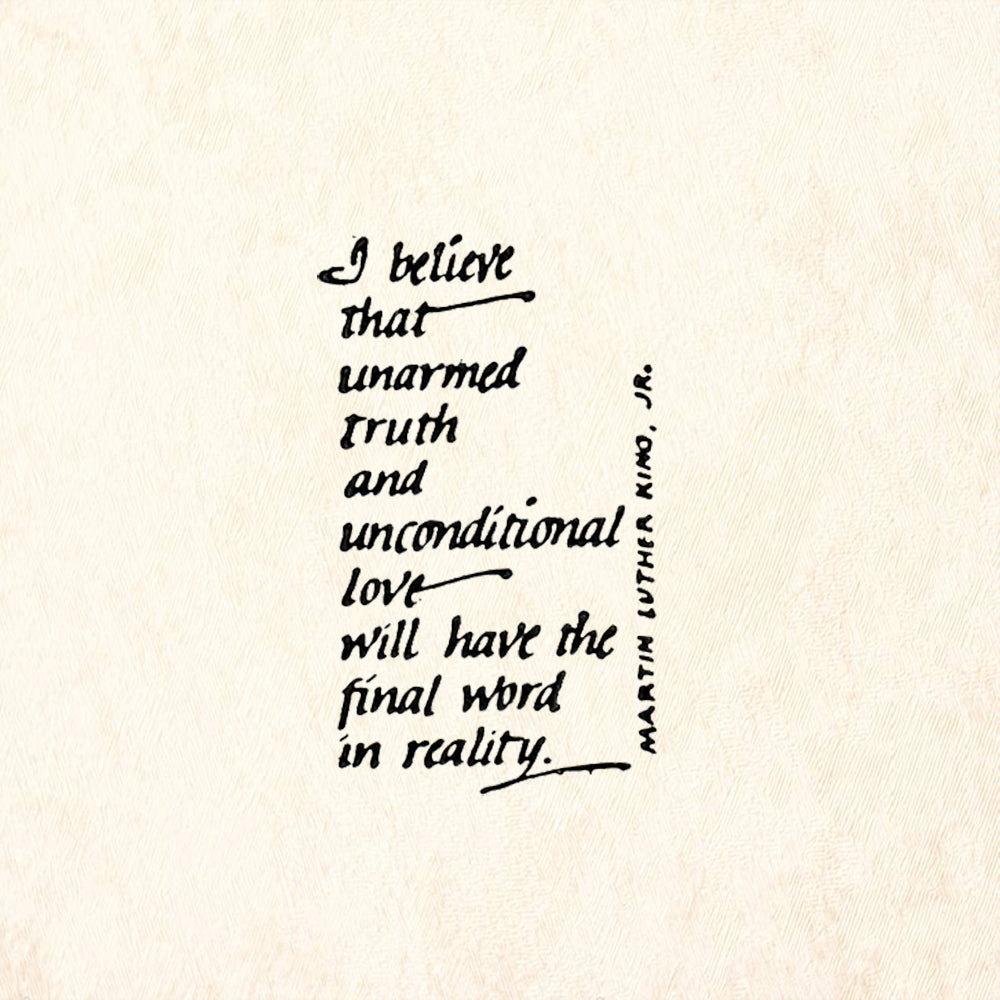 I believe
that
unarmed
truth
and
unconditional
love
will have the
final word
in reality.
MARTIN LUTHER KING, JR.